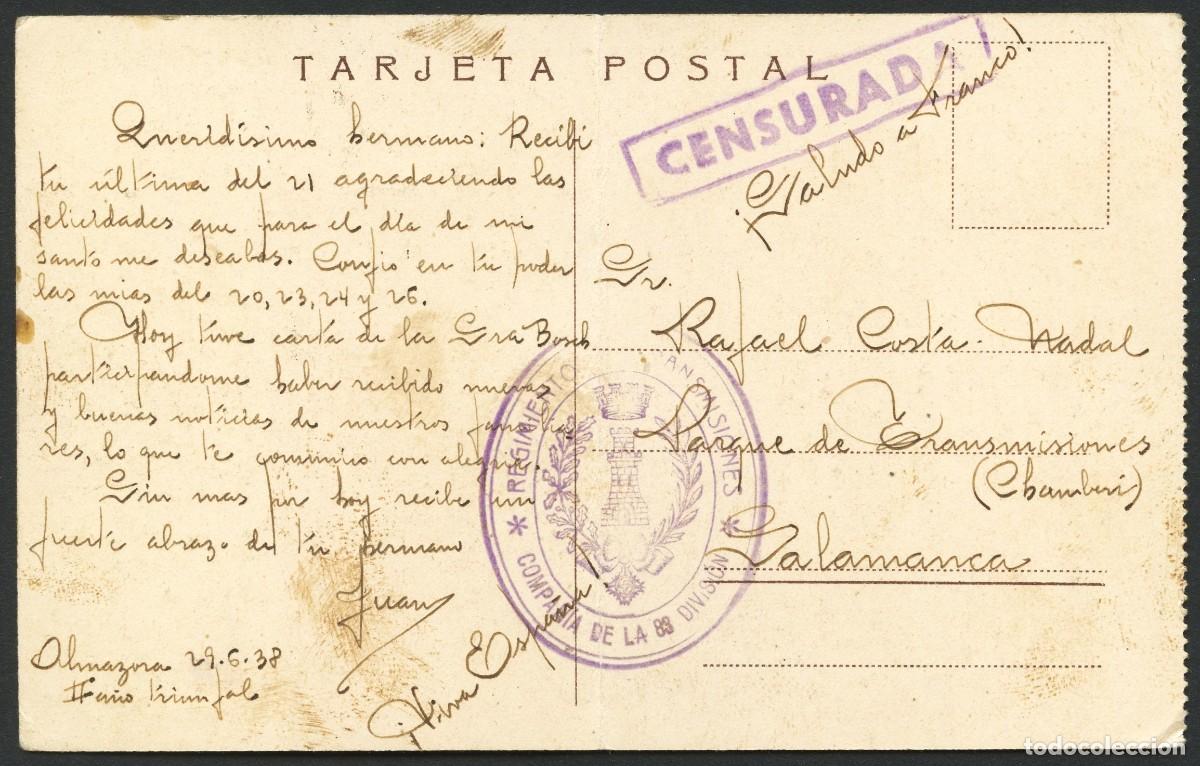 TARJETA POSTAL
CENSURADA
¡Saludo a Franco!
Queridísimo hermano: Recibí
tu última del 21 agradeciendo las
felicidades que para el día de mi
santo me deseabas. Confío en tu poder
las mias del 20, 23, 24 y 26.
Hoy tuve carta de la Sra Bosch
participandome haber recibido nuevas
y buenas noticias de nuestros familia
res, lo que te comunico con alegria.
Sin mas por hoy recibe un
fuerte abrazo de tu hermano
Juan
Almazora 29.6.38
II año triunfal
¡Viva España!
Sr.
Rafael Costa Nadal
Parque de Transmisiones
(Chamberi)
Salamanca
* REGIMIENTO TRANSMISIONES *
COMPAÑIA DE LA 83 DIVISION
todocoleccion.net